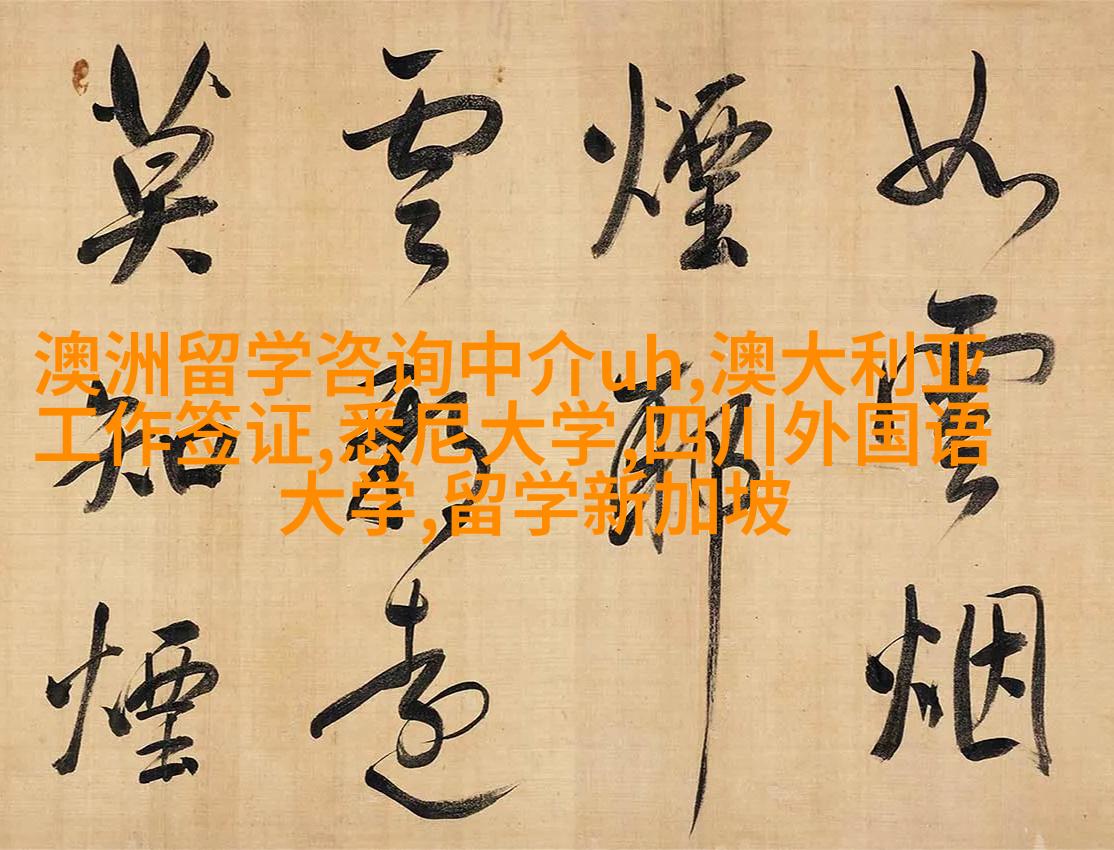 澳洲留学咨询中介uh,澳大利亚
工作签证,悉尼大学,四川外国语
大学,留学新加坡
如雲烟
煙
雲遠
莫知煙